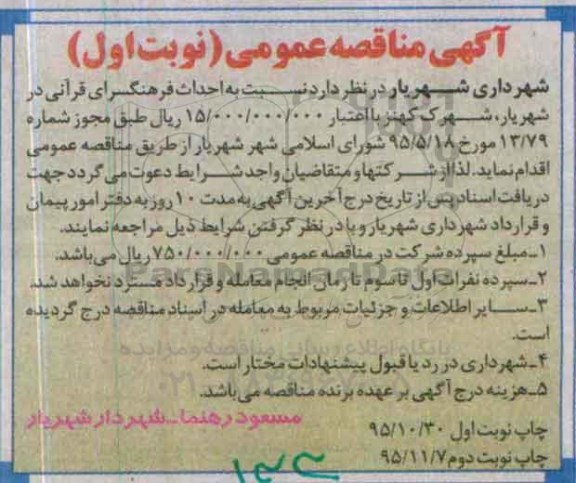 آگهی مناقصه عمومی (نوبت اول)
شهرداری شهریار در نظر دارد نسبت به احداث فرهنگسرای قرآنی در
شهریار، شهرک کهنز با اعتبار ۱۵/۰۰۰/۰۰۰/۰۰۰ ریال طبق مجوز شماره
۱۳/۷۹ مورخ ۹۵/۵/۱۸ شورای اسلامی شهر شهریار از طریق مناقصه عمومی
اقدام نماید. لذا از شرکتها و متقاضیان واجد شرایط دعوت می گردد جهت
دریافت اسناد پس از تاریخ درج آخرین آگهی به مدت ۱۰ روز به دفتر امور پیمان
و قرارداد شهرداری شهریار و با در نظر گرفتن شرایط ذیل مراجعه نمایند.
۱ـ مبلغ سپرده شرکت در مناقصه عمومی ۷۵۰/۰۰۰/۰۰۰ ریال می باشد.
۲ـ سپرده نفرات اول تا سوم تا زمان انجام معامله و قرارداد مسترد نخواهد شد.
۳ـ سایر اطلاعات و جزئیات مربوط به معامله در اسناد مناقصه درج گردیده
است.
۴ـ شهرداری در رد یا قبول پیشنهادات مختار است.
۵ـ هزینه درج آگهی بر عهده برنده مناقصه می باشد.
مسعود رهنما ـ شهردار شهریار
چاپ نوبت اول ۹۵/۱۰/۳۰
چاپ نوبت دوم ۹۵/۱۱/۷
ParsNamadData